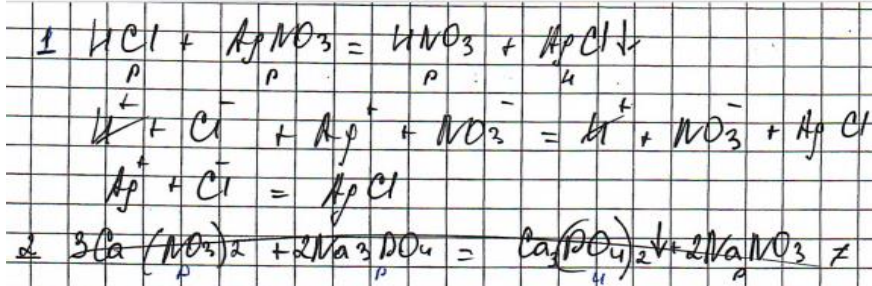 1 HCl + AgNO₃ = HNO₃ + AgCl↓
р р р н
H⁺ + Cl⁻ + Ag⁺ + NO₃⁻ = H⁺ + NO₃⁻ + AgCl
Ag⁺ + Cl⁻ = AgCl
2 3Ca(NO₃)₂ + 2Na₃PO₄ = Ca₃(PO₄)₂↓ + 2NaNO₃
р р н р